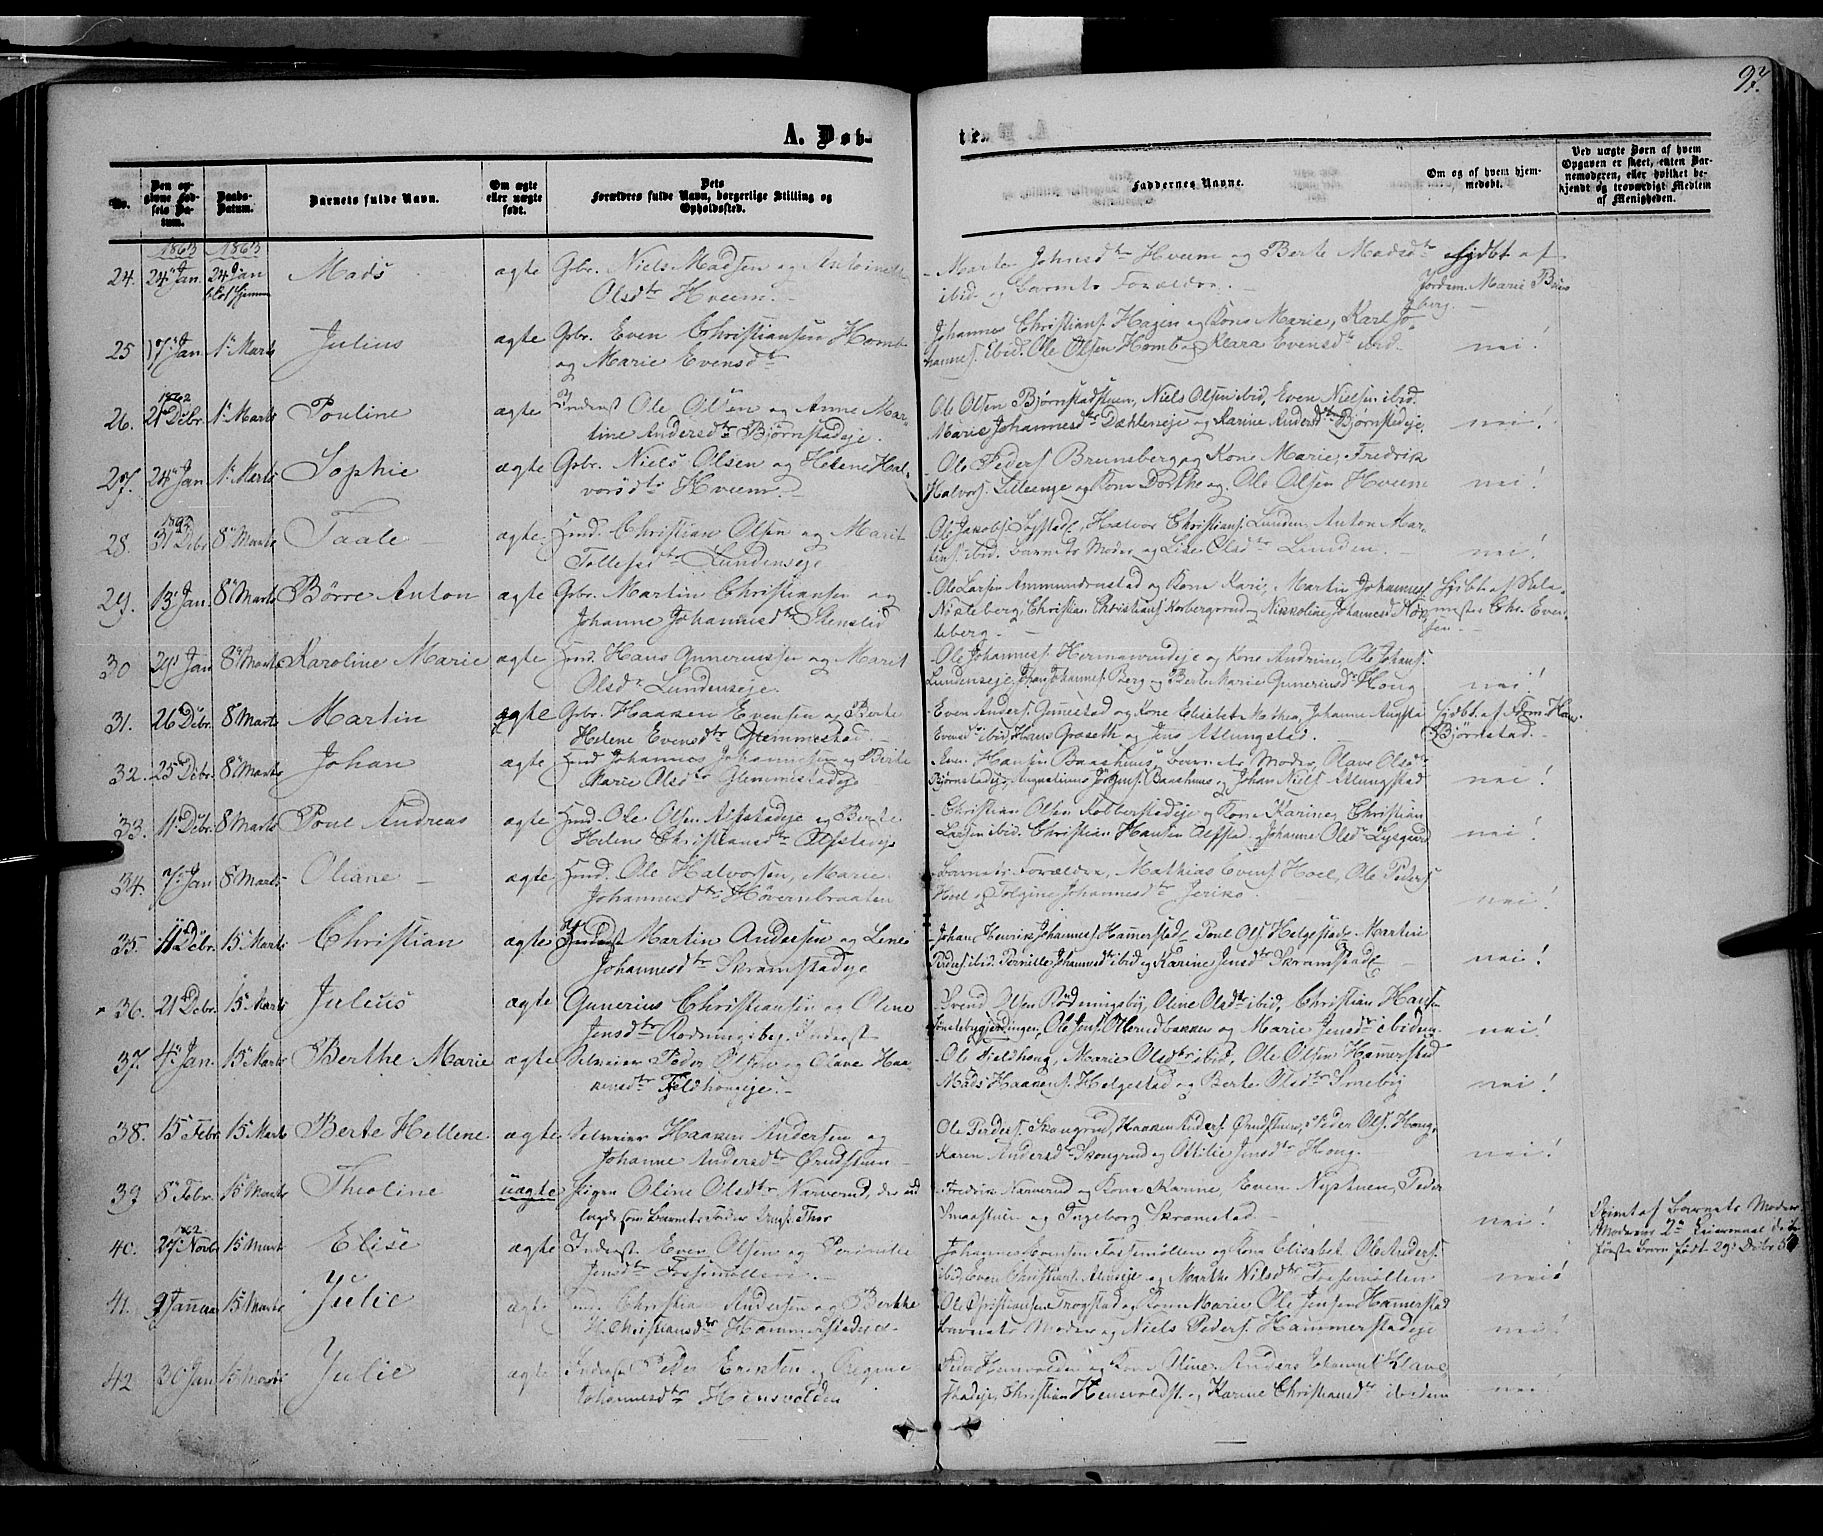 97.
A. Døb-
te.
No.
Den opgivne Fødsels Datum.
Daabs-Datum.
Barnets fulde Navn.
Om ægte eller uægte født.
Dets Forældres fulde Navn, borgerlige Stilling og Opholdssted.
Faddernes Navne.
Om og af hvem hjemmedøbt.
Ved uægte Børn af hvem Opgaven er skeet, enten Barnemoderen, eller hvilket bekjendt og troværdigt Medlem af Menigheden.
1863 1863
24. 24 Jan 24 Jan Mads ægte Gbr. Niels Madsen og
Olsdtr Hveem.
Marte Johnsdtr Hveem og Berte Madsdtr
ibid. og Barnets Forældre.
døbt af Jordem. Marie
berg.
25 17 Jan 1 Marts Julius ægte Gbr. Even Christiansen Homb
og Marie Evensdtr
Johannes Christians. Hagen og Kone Marie, Karl Jo-
hannes. ibid. Ole Olsen Homb og Klara Evensdtr ibid. nei!
1862
26. 21 Debr. 1 Marts Pouline ægte Inderst Ole Olsen og Anne Mar-
tine Andersdtr Bjørnstadeje.
Ole Olsen Bjørnstadstuen, Niels Olsen ibid, Even Nielsen ibid.
Marie Johannesdtr Dæhleneje og Karine Andersdtr Bjørnstadeje. nei!
27. 24 Jan 1 Marts Sophie ægte Gbr. Niels Olsen og Helene Hal-
vorsdtr Hveem.
Ole Peders. Brunsberg og Kone Marie, Fredrik
Halvors. Lilleenge og Kone Dorthe og Ole Olsen Hveem nei!
1862
28. 31 Debr 8 Marts Taale ægte Hmd. Christian Olsen og Marit
Tollefsdtr Lundenseje
Ole Jakobs. Sogstad, Halvor Christians. Lunden, Anton Mar-
tins. ibid. Barnets Moder og Lise Olsdtr Lunden. nei!
29. 13 Jan 8 Marts Børre Anton ægte Gbr. Martin Christiansen og
Johanne Johannesdtr Stenstad
Ole Larsen Ammundrustad og Kone Kari, Martin Johannes
Nøkleberg, Christian Christians. og Nikkoline Johannesd Nøk-
leberg.
Hjdbt. af Skole-
mester Chr. Even-
sen.
30 29 Jan 8 Marts Karoline Marie ægte Hmd. Hans Gunneriussen og Marit
Olsdtr Lundenseje.
Ole Johannes. Hermanrudeje og Kone Andrine, Ole Johans.
Lundenseje, Johan Johannes. Berg og Berte Marie Gunneriusdtr Houg nei!
31. 26 Debr. 8 Marts Martin ægte Gbr. Haaken Evensen og Berte
Helene Evensdtr Glemmestad.
Even Anders. og Kone Elisabet Johanne Augusta
Evensdtr ibid, Hans Graseth og Jens Atlungstad.
Hjdbt. af
Bjørnstad.
32. 25 Debr. 8 Marts Johan ægte Hmd Johannes Johannessen og Berte
Marie Olsdtr Glemmestadeje
Hansen Baashuus, Barnets Moder, Olave Olsd
Bjørnstadeje, Ingnatius Jørgens. Baashuus og Johan Niels. Atlungstad nei!
33. 11 Debr. 8 Marts Poul Andreas ægte Hmd. Ole Olsen Alfstadeje og Berte
Helene Christiansdtr Alfstadeje
Christian Olsen Kolberstadeje og Kone Karine, Christian
Larsen ibid. Christian Hansen og Johanne Olsdtr Lysgaard nei!
34. 7 Jan 8 Marts Oliane ægte Hmd. Ole Halvorsen, Marie
Johannesdtr Høvernbraaten
Barnets Forældre, Mathias Evens. Hoel, Ole Peders.
Hoel og Johannesdtr Jeriko. nei!
35. 11 Debr. 15 Marts Christian ægte Inderst Martin Andersen og Lene
Johannesdtr Skramstadeje
Johan Henrik Johannes. Hamerstad, Poul Ols. Helgestad, Martin
Peders. ibid. Pernille Johannesd ibid og Karine Jensdtr Skramstad nei!
36. 21 Debr. 15 Marts Julius ægte Gunerius Christiansen og Oline
Jensdtr Rødningsby, Inderst
Svend Olsen Rødningsby, Oline Olsdtr ibid, Christian Hans.
Ole Jens. Ottersudbakken og Marie Jensdtr ibidem nei!
37. 4 Jan. 15 Marts Berthe Marie ægte Selveier Peder Olsen og Olave Haa-
kensdtr Fjeldhougeje.
Ole Fjeldhoug, Marie Olsdtr ibid, Ole Olsen Hamerstad
Mads Haakens. Helgestad og Berte Olsdtr Smeby nei!
38. 15 Febr. 15 Marts Berte Hellene ægte Selveier Haaken Andersen og
Johanne Andersdtr Grudstuen
Ole Peders. Skougrud, Haaken Anders. Grudstuen, Peder Ols. Houg
Karen Andersd Skougrud og Ottilie Jensdtr Houg. nei!
39 8 Febr. 15 Marts Theoline uægte Pigen Oline Olsdtr Narverud, der ud
lagde som Barnets Fader Ungk. Thor
Fredrik Narverud og Kone Karine, Even Nystuen, Peder
Smaastuen og Ingeborg Skramstad. nei!
Opgivet af Barnets Moder
Moderens 2det Leiermaal, det
første Barn født 29 Debr 5
1862
40. 27 Novb. 15 Marts Elise ægte Inderst Even Olsen og Pernille
Jensdtr Fossemøllen.
Johannes Evensen Fossemøllen og Kone Elisabet, Ole Anders.
ibid, Even Christians. og Marthe Nilsdtr Fossemøllen nei!
41. 9 Januar 15 Marts Julie ægte Hmd. Christian Andersen og Berthe
M. Christiansdtr Hammerstadeje
Ole Christiansen Trogstad og Kone Marie, Ole Jensen Hamerstad
Barnets Moder og Niels Peders. Hammerstadeje nei!
42 30 Jan 15 Marts Julie ægte Inderst Peder Eriksen og Regine
Johannesdtr Hensvolden
Peder Hensvolden og Kone Oline, Anders Johannes. Klave
stadeje, Christian Hensvolds. og Karine Christiansdtr ibidem nei!